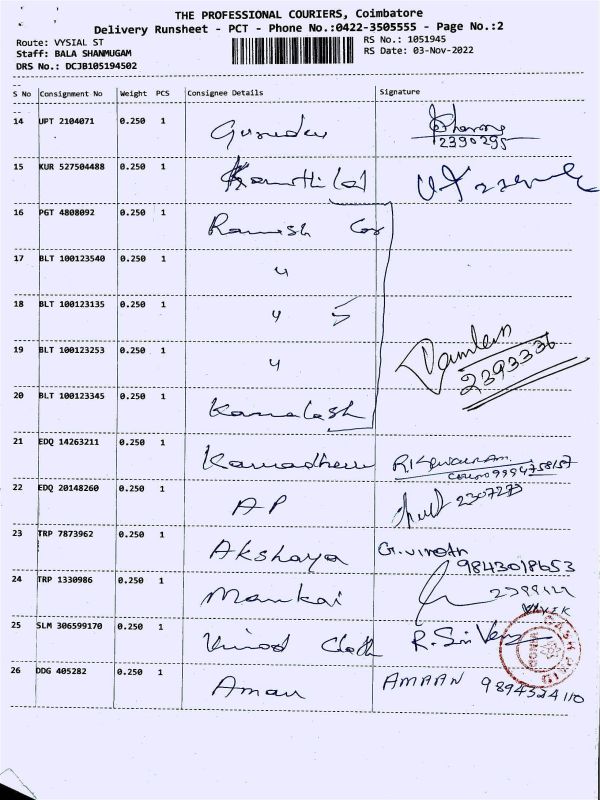 THE PROFESSIONAL COURIERS, Coimbatore
Delivery Runsheet - PCT - Phone No.:0422-3505555 - Page No.:2
Route: VYSIAL ST
RS No.: 1051945
Staff: BALA SHANMUGAM
RS Date: 03-Nov-2022
DRS No.: DCJB105194502
S No Consignment No Weight PCS Consignee Details Signature
14 UPT 2104071 0.250 1 Gurudev
2390295
15 KUR 527504488 0.250 1
16 PGT 4808092 0.250 1 Ramesh Cor
17 BLT 100123540 0.250 1 "
18 BLT 100123135 0.250 1 " 5
19 BLT 100123253 0.250 1 "
2393336
20 BLT 100123345 0.250 1 Kamalash
21 EDQ 14263211 0.250 1 Kamadhenu
22 EDQ 20148260 0.250 1 AP 2307273
23 TRP 7873962 0.250 1 Akshaya G.vinoth
9843018653
24 TRP 1330986 0.250 1 Mankai
25 SLM 306599170 0.250 1 Vinod Cloth
26 DDG 405282 0.250 1 Aman AMAAN 9894324110